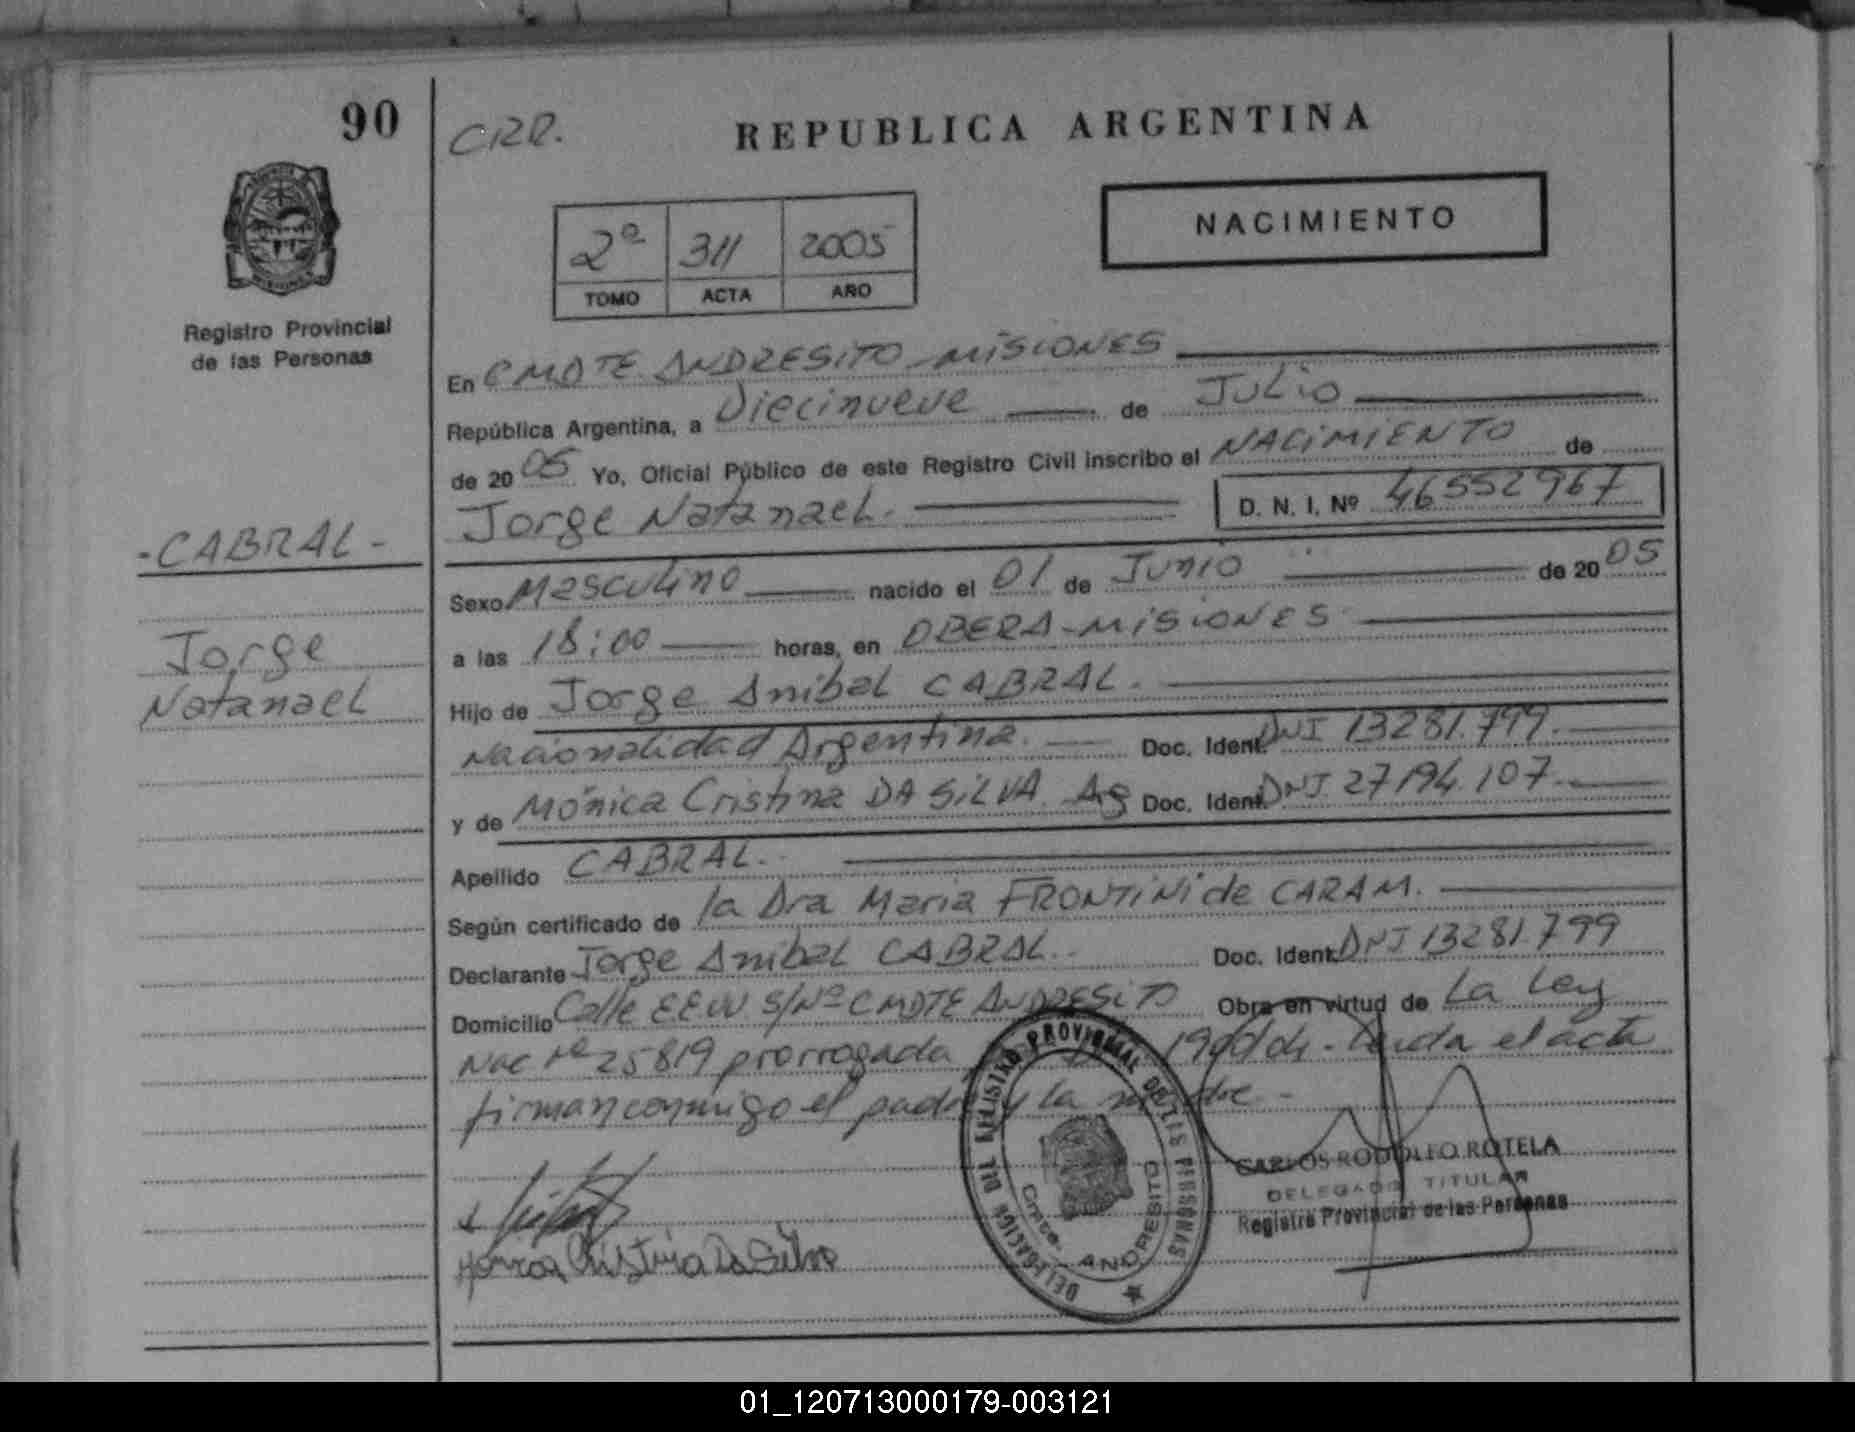 90
Registro Provincial
de las Personas
- CABRAL -
Jorge
Natanael
REPUBLICA ARGENTINA
2º 311 2005
TOMO ACTA AÑO
NACIMIENTO
En CMDTE ANDRESITO - MISIONES
República Argentina, a Diecinueve de JULIO
de 2005 Yo, Oficial Público de este Registro Civil inscribo el NACIMIENTO de
Jorge Natanael. D. N. I. Nº 46552967
Sexo Masculino nacido el 01 de Junio de 2005
a las 18:00 horas, en OBERA - MISIONES
Hijo de Jorge Anibal CABRAL.
Nacionalidad Argentina. Doc. Ident. DNI 13281.799.
y de Mónica Cristina DA SILVA Arg Doc. Ident. DNI 27194.107.
Apellido CABRAL.
Según certificado de la Dra Maria FRONTINI de CARAM.
Declarante Jorge Anibal CABRAL. Doc. Ident. DNI 13281.799
Domicilio Calle EEUU S/Nº CMDTE ANDRESITO Obra en virtud de La Ley
Nac Nº 25819 prorrogada el acta
firman conmigo el padre y la madre -
Cristina Da Silva
DELEGACION DEL REGISTRO PROVINCIAL DE LAS PERSONAS
Cmte. ANDRESITO
CARLOS RODOLFO ROTELA
DELEGADO TITULAR
Registro Provincial de las Personas
01_120713000179-003121